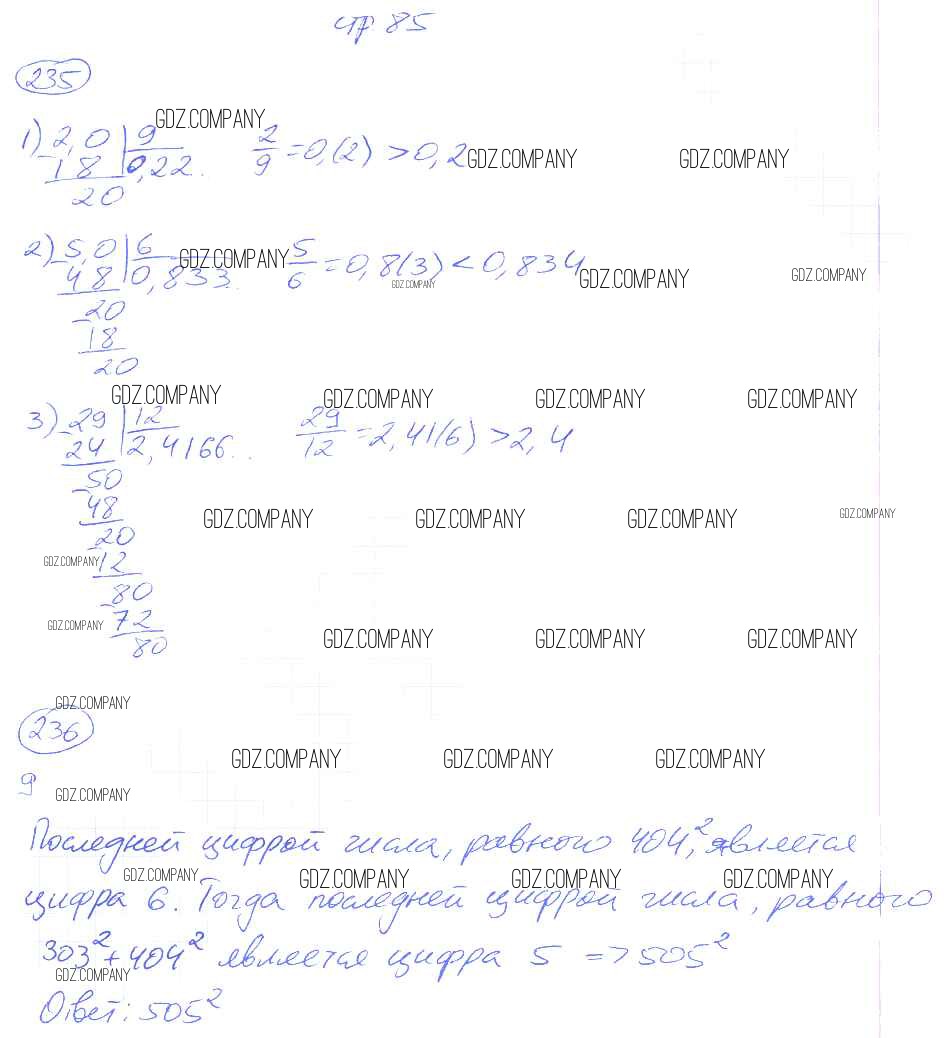 стр. 85
235
GDZ.COMPANY
1) 2,0 | 9   2/9 = 0,(2) > 0,2 GDZ.COMPANY GDZ.COMPANY
18 | 0,22.
20
2) 5,0 | 6 GDZ.COMPANY 5/6 = 0,8(3) < 0,834 GDZ.COMPANY GDZ.COMPANY
48 | 0,833.. GDZ.COMPANY
20
18
20
GDZ.COMPANY GDZ.COMPANY GDZ.COMPANY GDZ.COMPANY
3) 29 | 12   29/12 = 2,41(6) > 2,4
24 | 2,4166..
50
48 GDZ.COMPANY GDZ.COMPANY GDZ.COMPANY GDZ.COMPANY
20
GDZ.COMPANY 12
80
GDZ.COMPANY 72 GDZ.COMPANY GDZ.COMPANY GDZ.COMPANY
80
GDZ.COMPANY
236
GDZ.COMPANY GDZ.COMPANY GDZ.COMPANY
9
GDZ.COMPANY
Последней цифрой числа, равного 404², является
GDZ.COMPANY GDZ.COMPANY GDZ.COMPANY GDZ.COMPANY
цифра 6. Тогда последней цифрой числа, равного
303² + 404² является цифра 5 => 505²
GDZ.COMPANY
Ответ: 505²